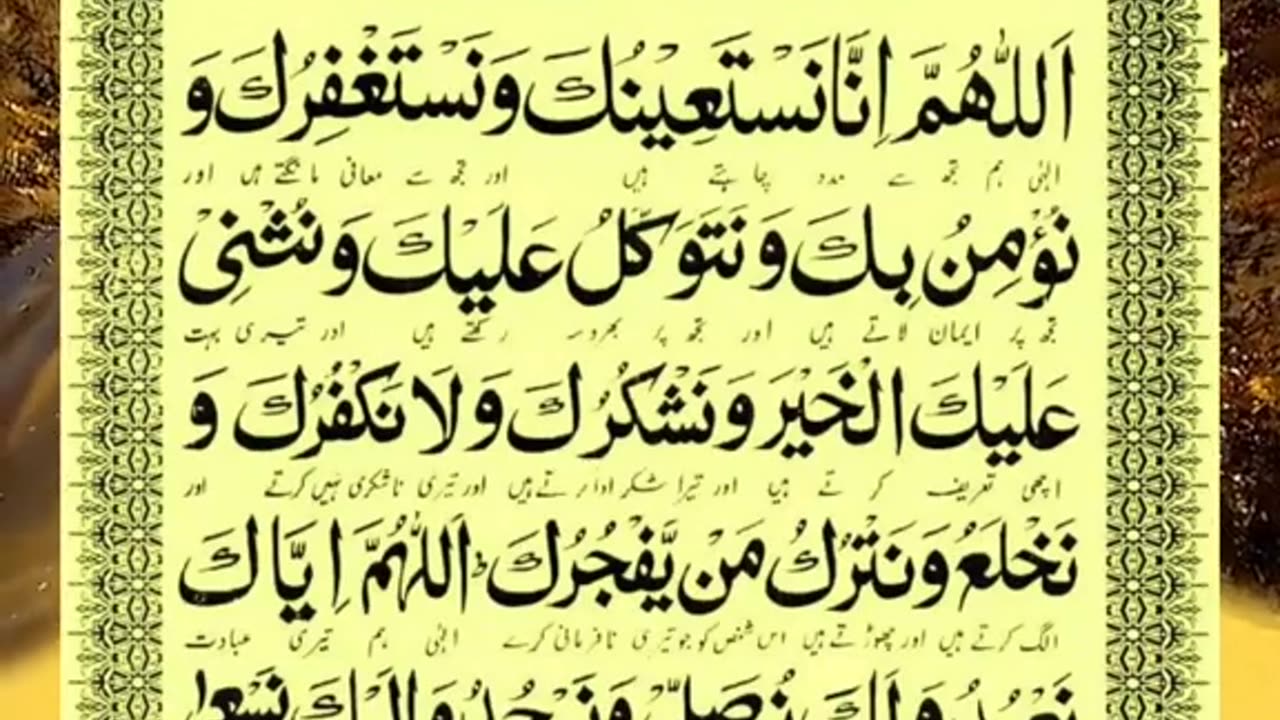 اَللّٰهُمَّ اِنَّا نَسْتَعِيْنُكَ وَنَسْتَغْفِرُكَ وَ
الہٰی ہم تجھ سے مدد چاہتے ہیں اور تجھ سے معافی مانگتے ہیں اور
نُؤْمِنُ بِكَ وَنَتَوَكَّلُ عَلَيْكَ وَنُثْنِىْ
تجھ پر ایمان لاتے ہیں اور تجھ پر بھروسہ رکھتے ہیں اور تیری بہت
عَلَيْكَ الْخَيْرَ وَنَشْكُرُكَ وَلَا نَكْفُرُكَ وَ
اچھی تعریف کرتے ہیں اور تیرا شکر ادا کرتے ہیں اور تیری ناشکری نہیں کرتے اور
نَخْلَعُ وَنَتْرُكُ مَنْ يَّفْجُرُكَ ؕ اَللّٰهُمَّ اِيَّاكَ
الگ کرتے ہیں اور چھوڑتے ہیں اس شخص کو جو تیری نافرمانی کرے الہٰی ہم تیری عبادت
نَعْبُدُ وَلَكَ نُصَلِّىْ وَنَسْجُدُ وَاِلَيْكَ نَسْعٰى